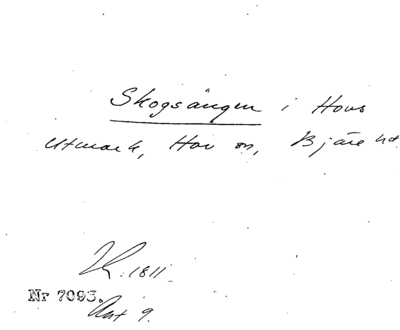 Skogsången i Hovs
Utmark, Hov sn, Bjäre hd
1811.
Nr 7093.
Akt 9.